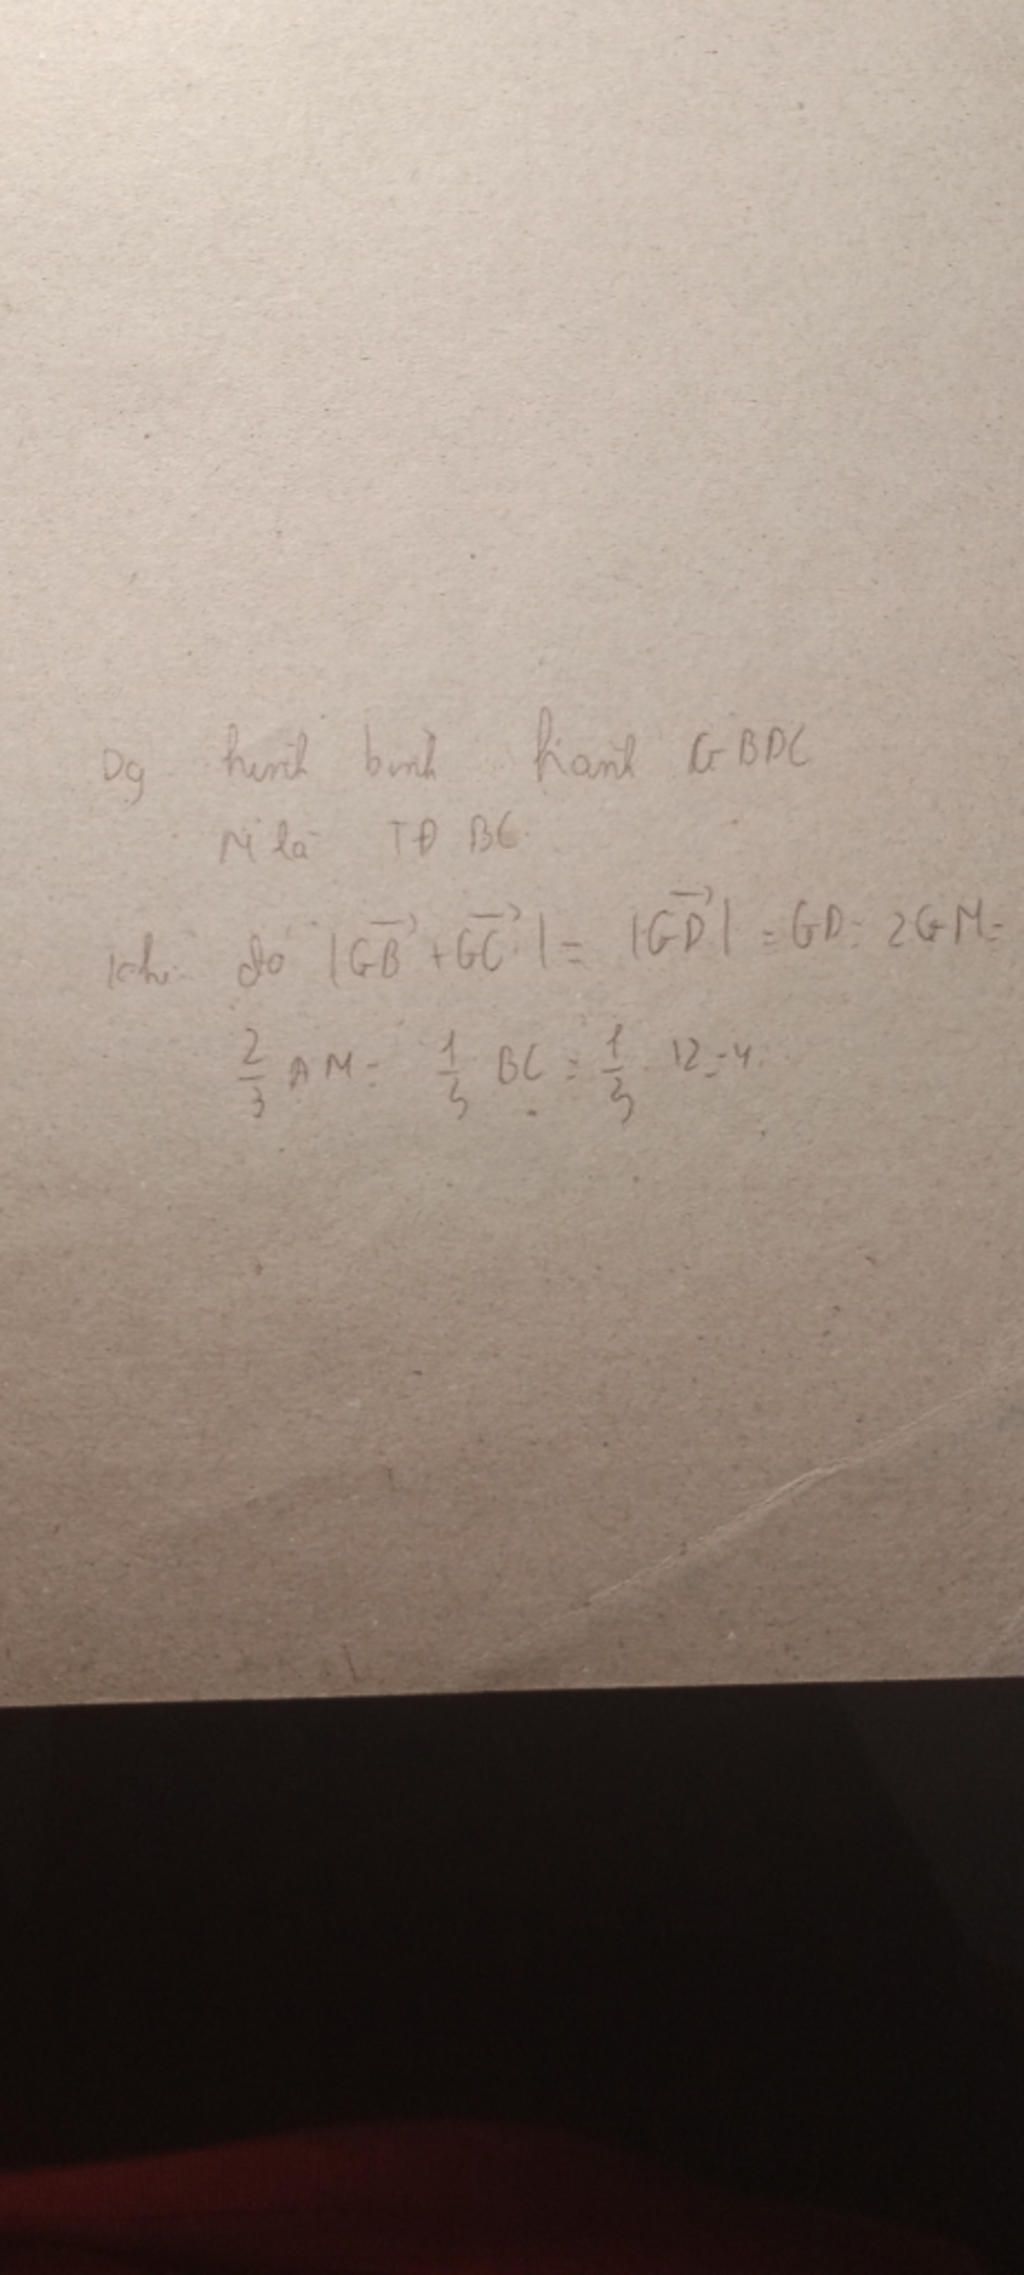 Dg hình bình hành GBDC
M là TĐ BC.
Khi đó |GB→ + GC→| = |GD→| = GD = 2GM =
2/3 AM = 1/3 BC = 1/3 . 12 = 4.